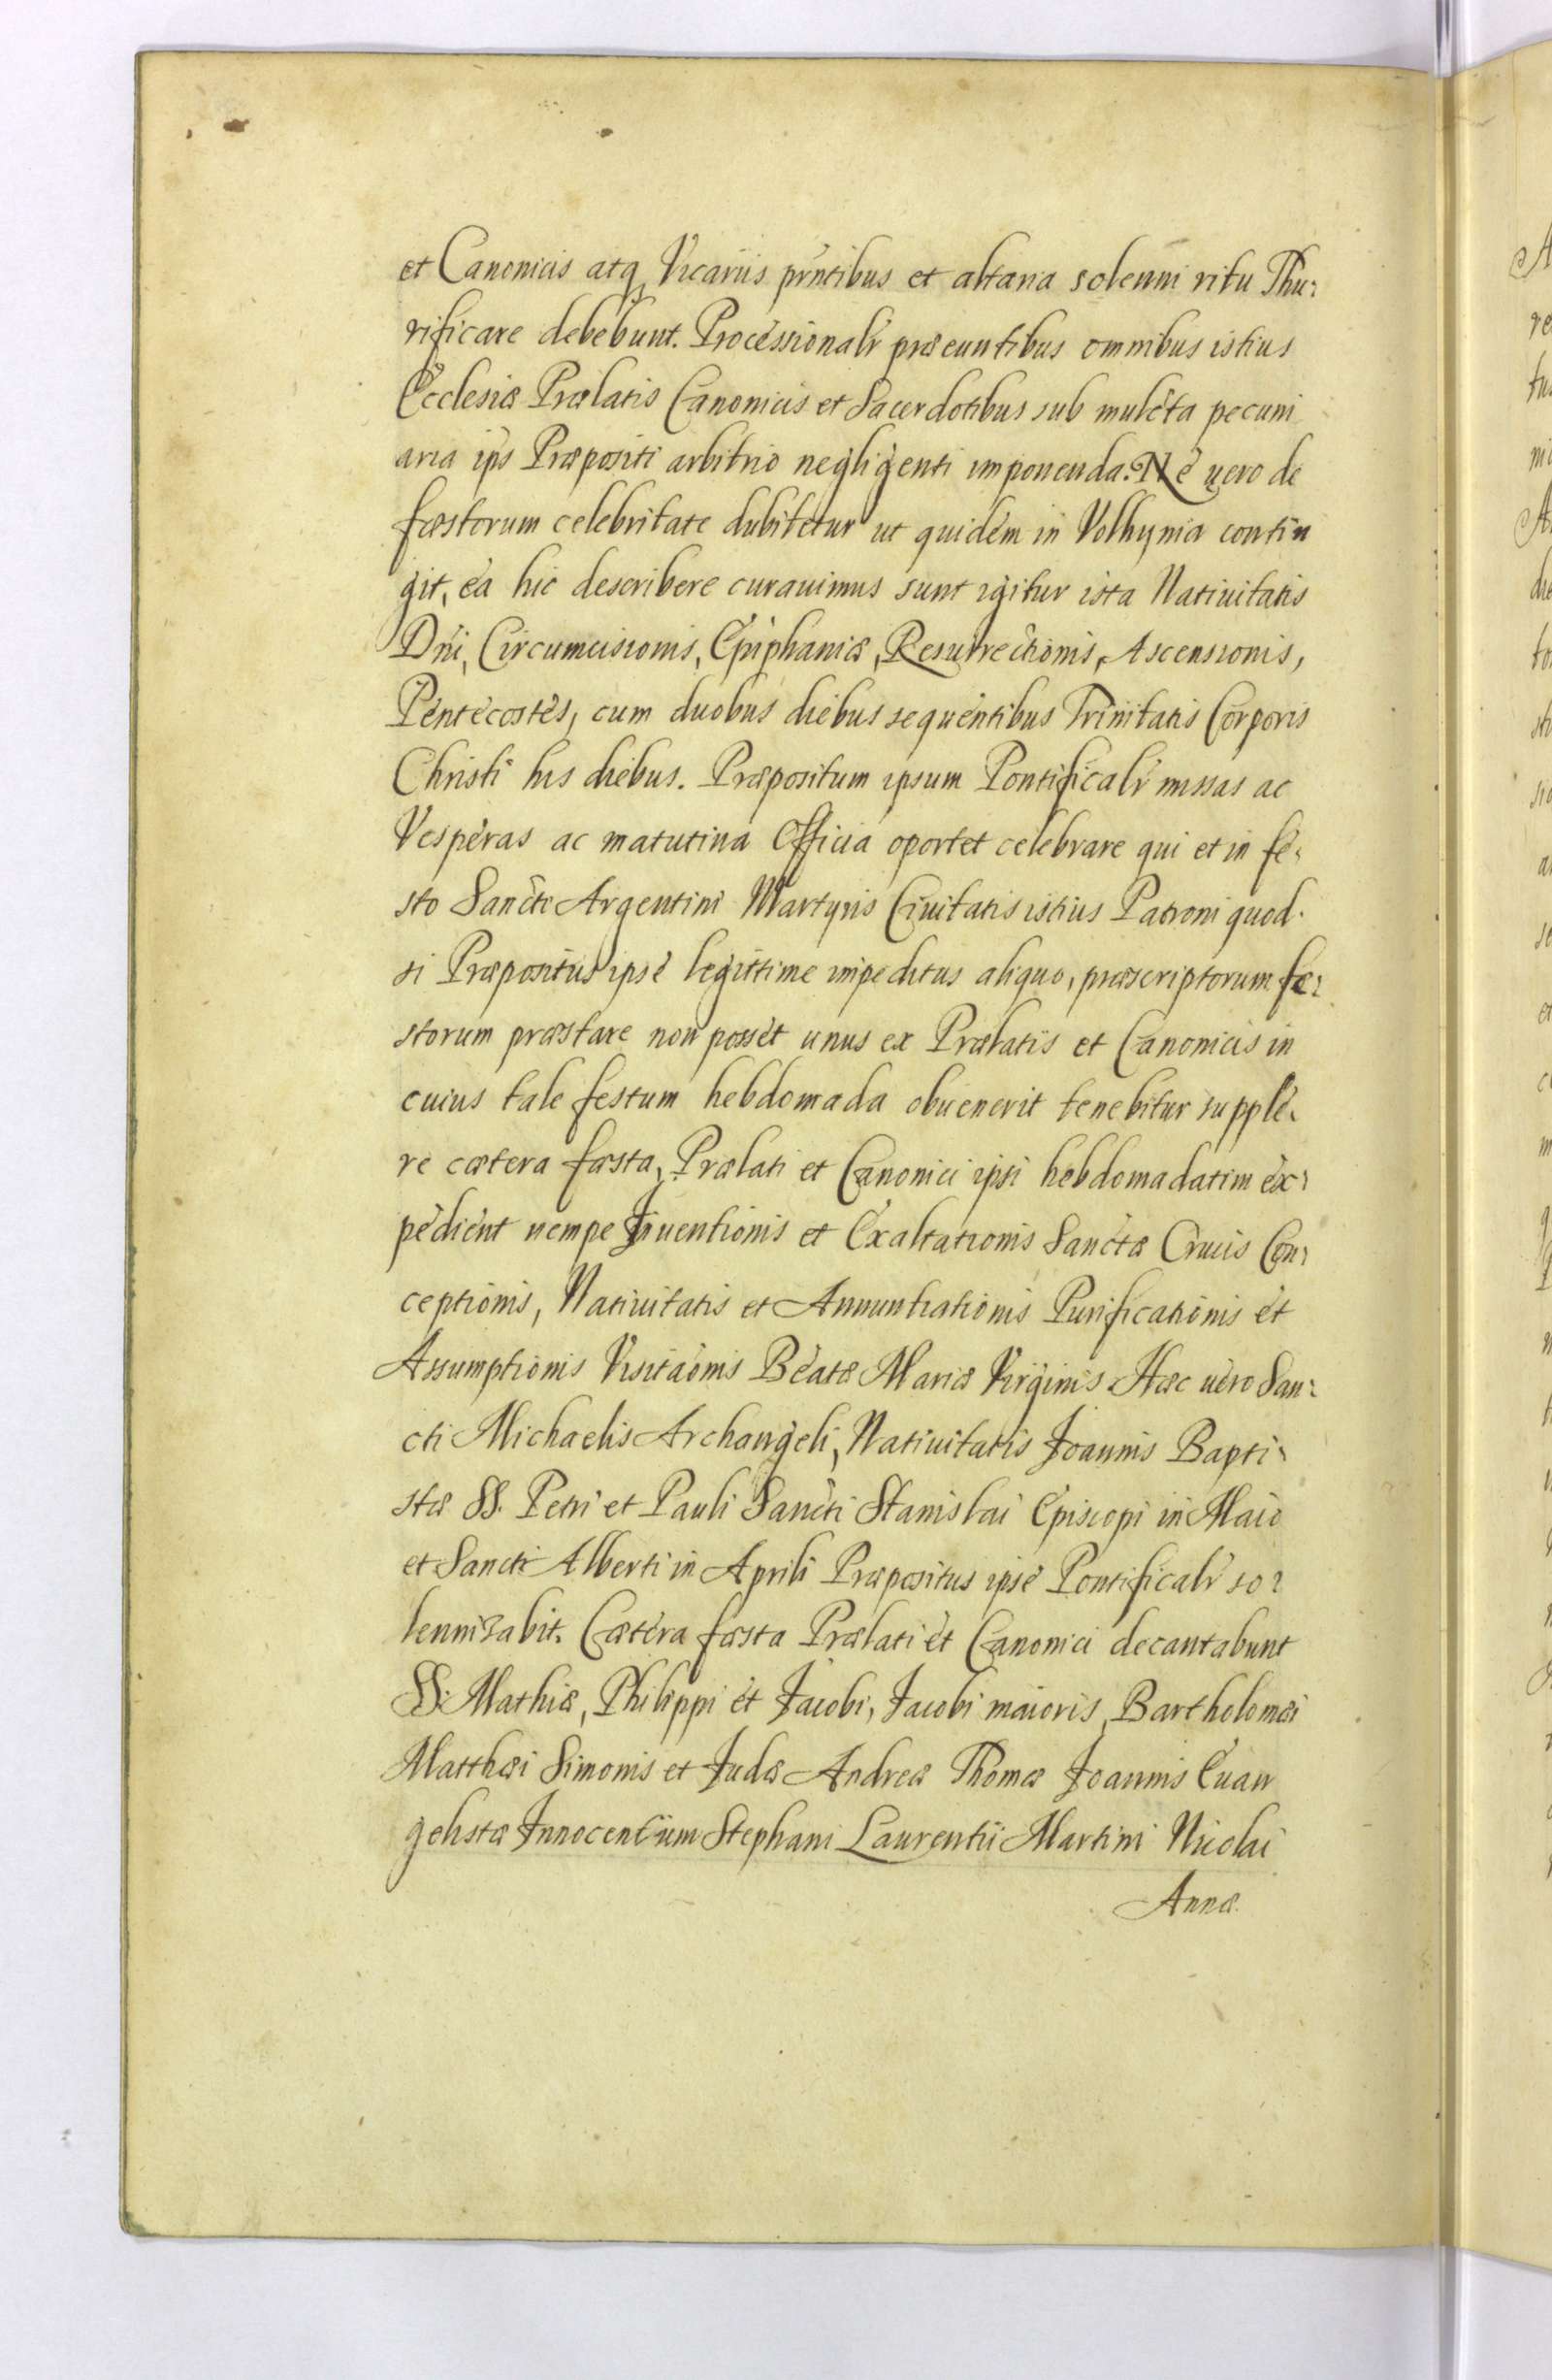 et Canonicis atq Vicariis prntibus et altaria solenni ritu Thu:
rificare debebunt. Processionalr præeuntibus omnibus istius
Ecclesiæ Prælatis Canonicis et Sacerdotibus sub mulcta pecuni
aria ips Præpositi arbitrio negligenti imponenda. Ne uero de
fæstorum celebritate dubitetur ut quidem in Volhynia contin
git, ea hic describere curauimus sunt igitur ista Natiuitatis
Dni, Circumcisionis, Epiphaniæ, Resurrectionis, Ascensionis,
Pentecostes, cum duobus diebus sequentibus Trinitatis Corporis
Christi his diebus. Præpositum ipsum Pontificalr missas ac
Vesperas ac matutina Officia oportet celebrare qui et in fe:
sto Sancti Argentini Martyris Ciuitatis istius Patroni quod.
si Præpositus ipse legittime impeditus aliquo, præscriptorum fe:
storum præstare non posset unus ex Prælatis et Canonicis in
cuius tale festum hebdomada obuenerit tenebitur supple:
re cætera fæsta, Prælati et Canonici ipsi hebdomadatim ex:
pedient nempe Inuentionis et Exaltationis Sanctæ Crucis Con:
ceptionis, Natiuitatis et Annuntiationis Purificationis et
Assumptionis Visitaonis Beatæ Mariæ Virginis Hæc uero San:
cti Michaelis Archangeli, Natiuitatis Joannis Bapti:
stæ SS. Petri et Pauli Sancti Stanislai Episcopi in Maio
et Sancti Alberti in Aprili Præpositus ipse Pontificalr so:
lennizabit. Cætera fæsta Prælati et Canonici decantabunt
SS: Mathiæ, Philippi et Jacobi, Jacobi maioris, Bartholomæi
Matthæi Simonis et Judæ Andreæ Thomæ Joannis Euan
gelistæ Innocentium Stephani Laurentii Martini Nicolai
Annæ.